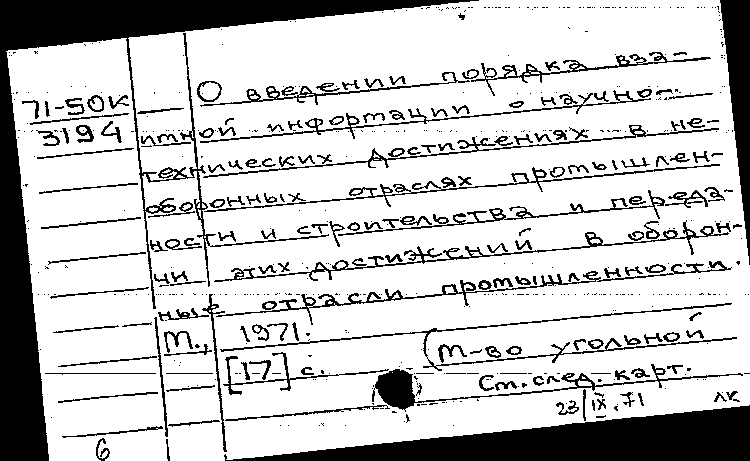 71-50К
3194
О введении порядка вза-
имной информации о научно-
технических достижениях в не-
оборонных отраслях промышлен-
ности и строительства и переда-
чи этих достижений в оборон-
ные отрасли промышленности.
М., 1971.
[17] с.
(М-во угольной
См. след. карт.
23/IX.71
ЛК
6